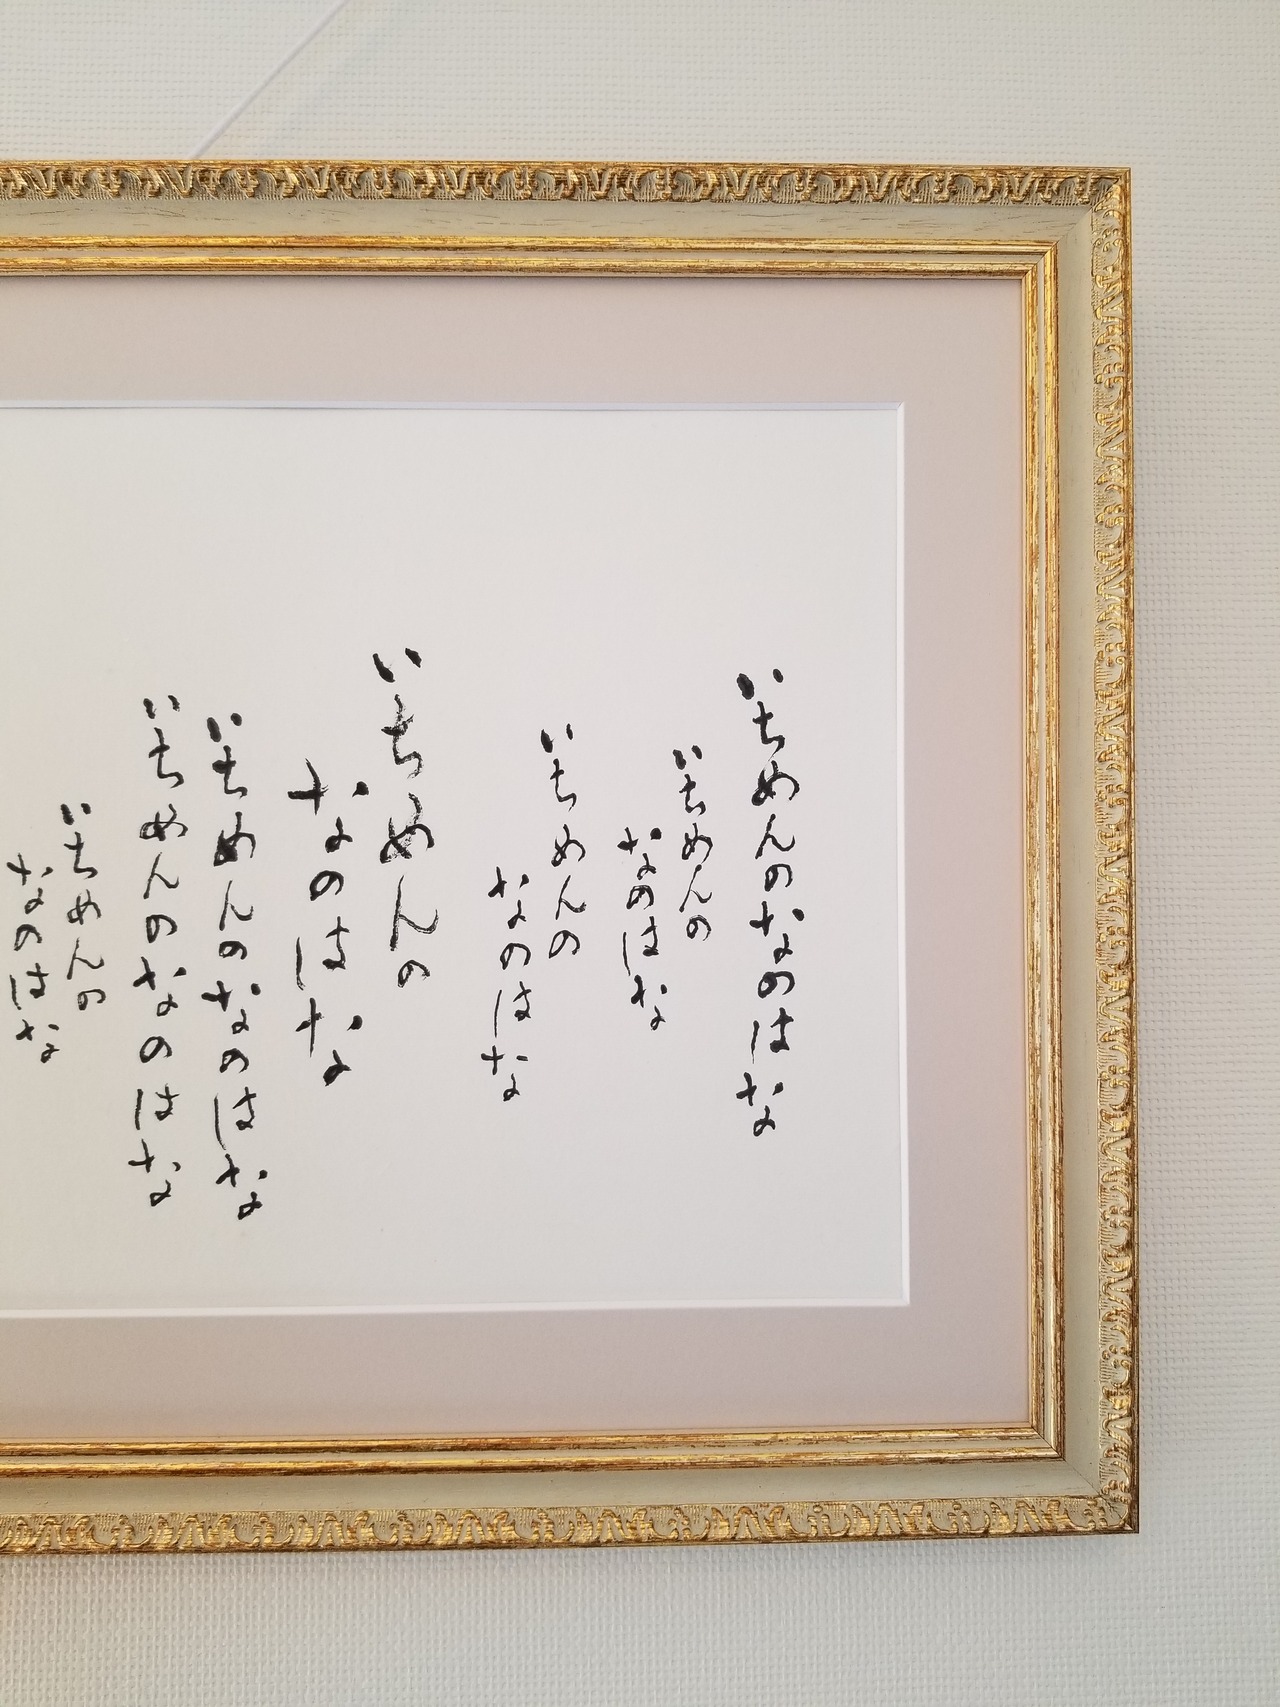 いちめんのなのはな
いちめんの
なのはな
いちめんの
なのはな
いちめんの
なのはな
いちめんのなのはな
いちめんのなのはな
いちめんの
なのはな